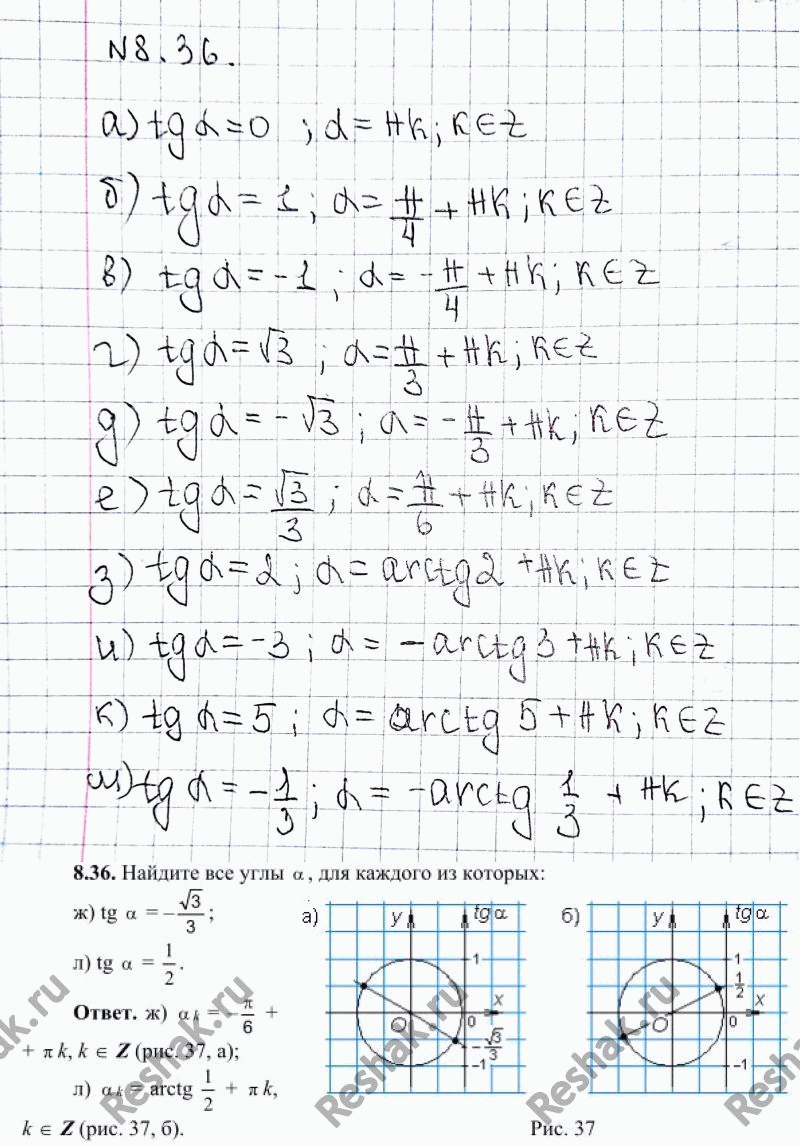 №8.36.
а) tg α = 0 ; α = πk; k ∈ Z
б) tg α = 1 ; α = π/4 + πk ; k ∈ Z
в) tg α = -1 ; α = -π/4 + πk ; k ∈ Z
г) tg α = √3 ; α = π/3 + πk ; k ∈ Z
д) tg α = -√3 ; α = -π/3 + πk ; k ∈ Z
е) tg α = √3/3 ; α = π/6 + πk ; k ∈ Z
з) tg α = 2 ; α = arctg 2 + πk ; k ∈ Z
и) tg α = -3 ; α = -arctg 3 + πk ; k ∈ Z
к) tg α = 5 ; α = arctg 5 + πk ; k ∈ Z
м) tg α = -1/3 ; α = -arctg 1/3 + πk ; k ∈ Z
8.36. Найдите все углы α, для каждого из которых:
ж) tg α = -√3/3 ;
л) tg α = 1/2 .
Ответ. ж) αk = -π/6 +
+ πk, k ∈ Z (рис. 37, а);
л) αk = arctg 1/2 + πk,
k ∈ Z (рис. 37, б).
а)
y
tg α
1
x
O
0
-√3/3
-1
б)
y
tg α
1
1/2
x
O
0
-1
Рис. 37
Reshak.ru
Reshak.ru
Reshak.ru
Reshak.ru